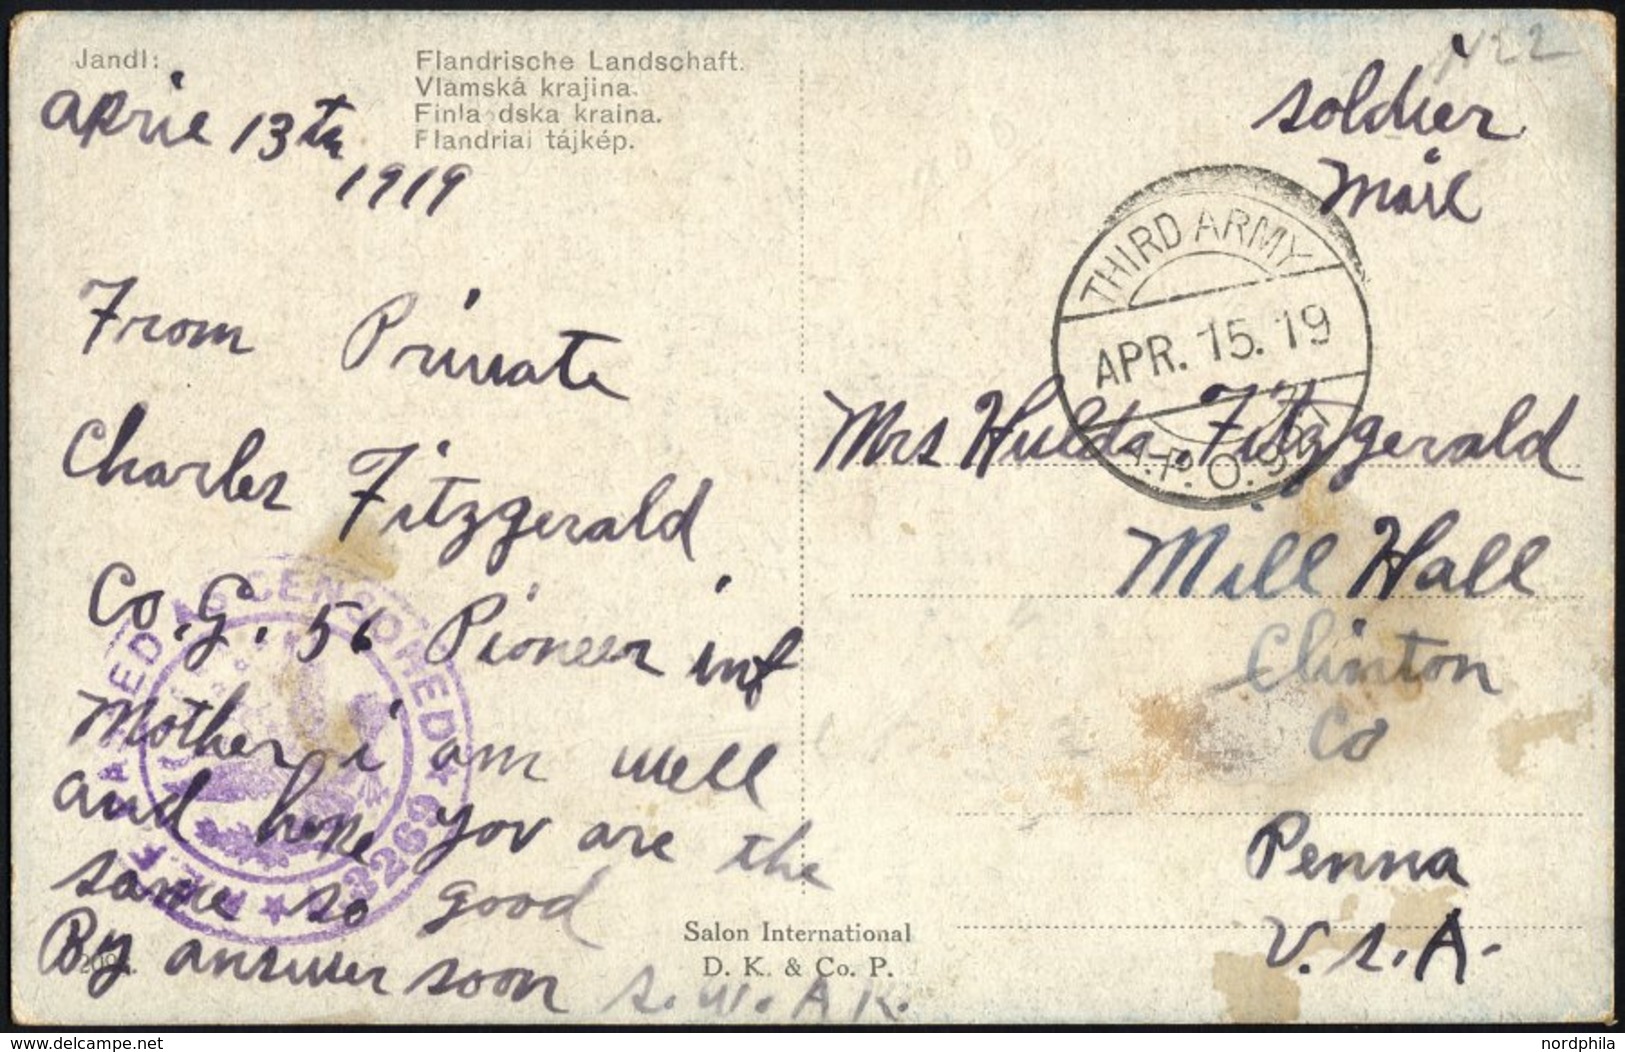 Jandl:
Flandrische Landschaft.
Vlámská krajina.
Finla dska kraina.
Flandriai tájkép.
aprie 13th
1919
From Private
Charles Fitzgerald
Co. G. 56 Pioneer inf
Mother i am well
and hope yov are the
same so good
By answer soon
S.W.A.K.
A.E.F. PASSED AS CENSORED
3269
Salon International
D. K. & Co. P.
N22
soldier
Mail
THIRD ARMY
APR. 15. 19
A.P.O.
Mrs Hulda Fitzgerald
Mill Hall
Clinton
Co
Penna
U.S.A.
www.delcampe.net
nordphila